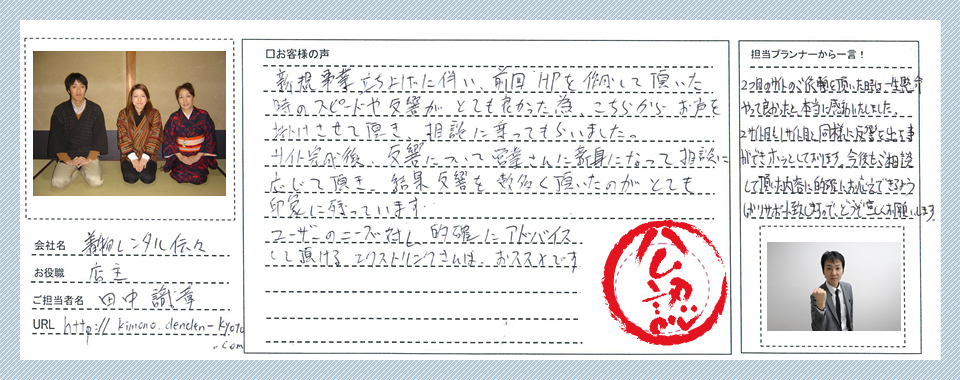 会社名 着物レンタル伝々
お役職 店主
ご担当者名 田中 識章
URL http://kimono.denden-kyoto
.com
□お客様の声
新規事業立ち上げに伴い、前回HPを作成して頂いた
時のスピードや反響がとても良かった為、こちらからお声を
掛けさせて頂き、相談に乗ってもらいました。
サイト完成後、反響について営業さんに親身になって相談に
応じて頂き、結果反響を数多く頂いたのがとても
印象に残っています。
ユーザーのニーズ対し的確にアドバイス
して頂ける、エクストリンクさんは、おススメです
公認
担当プランナーから一言！
2つ目のサイトのご依頼を頂いた時は一生懸命
やって良かったと、本当に感動いたしました。
2サイト目も1サイト目と同様に反響を出す事
ができホッとしております。今後もご相談
して頂いた内容に的確にお応えできるよう
しっかりサポート致しますので、どうぞ宜しくお願いします。